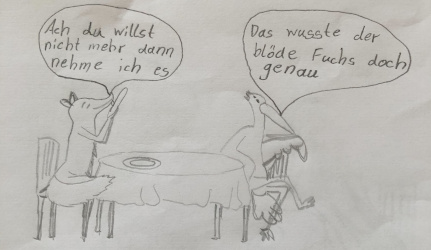 Ach du willst
nicht mehr dann
nehme ich es
Das wusste der
blöde Fuchs doch
genau